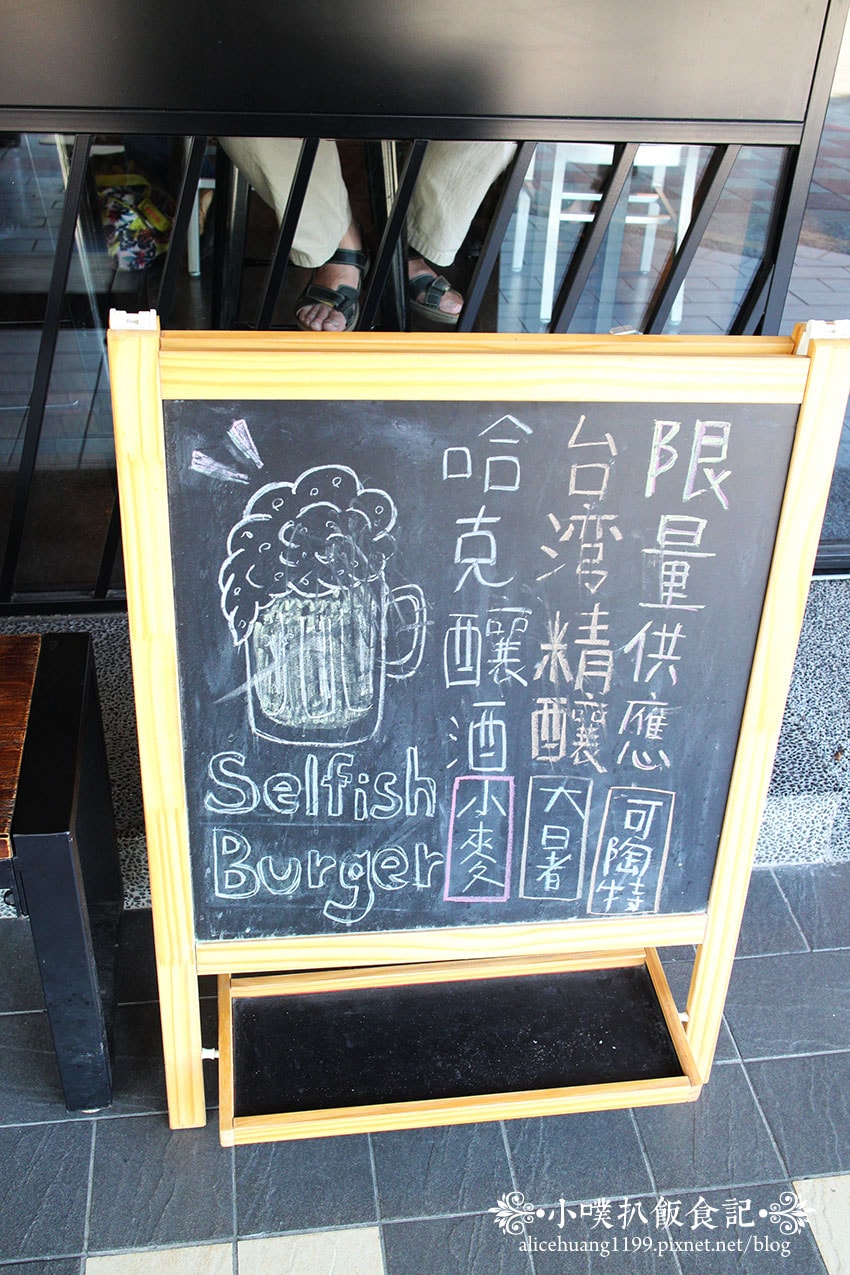 限量供應
台湾精釀
哈克釀酒
可陶特
大暑
小麥
Selfish
Burger
小噗扒飯食記
alicehuang1199.pixnet.net/blog